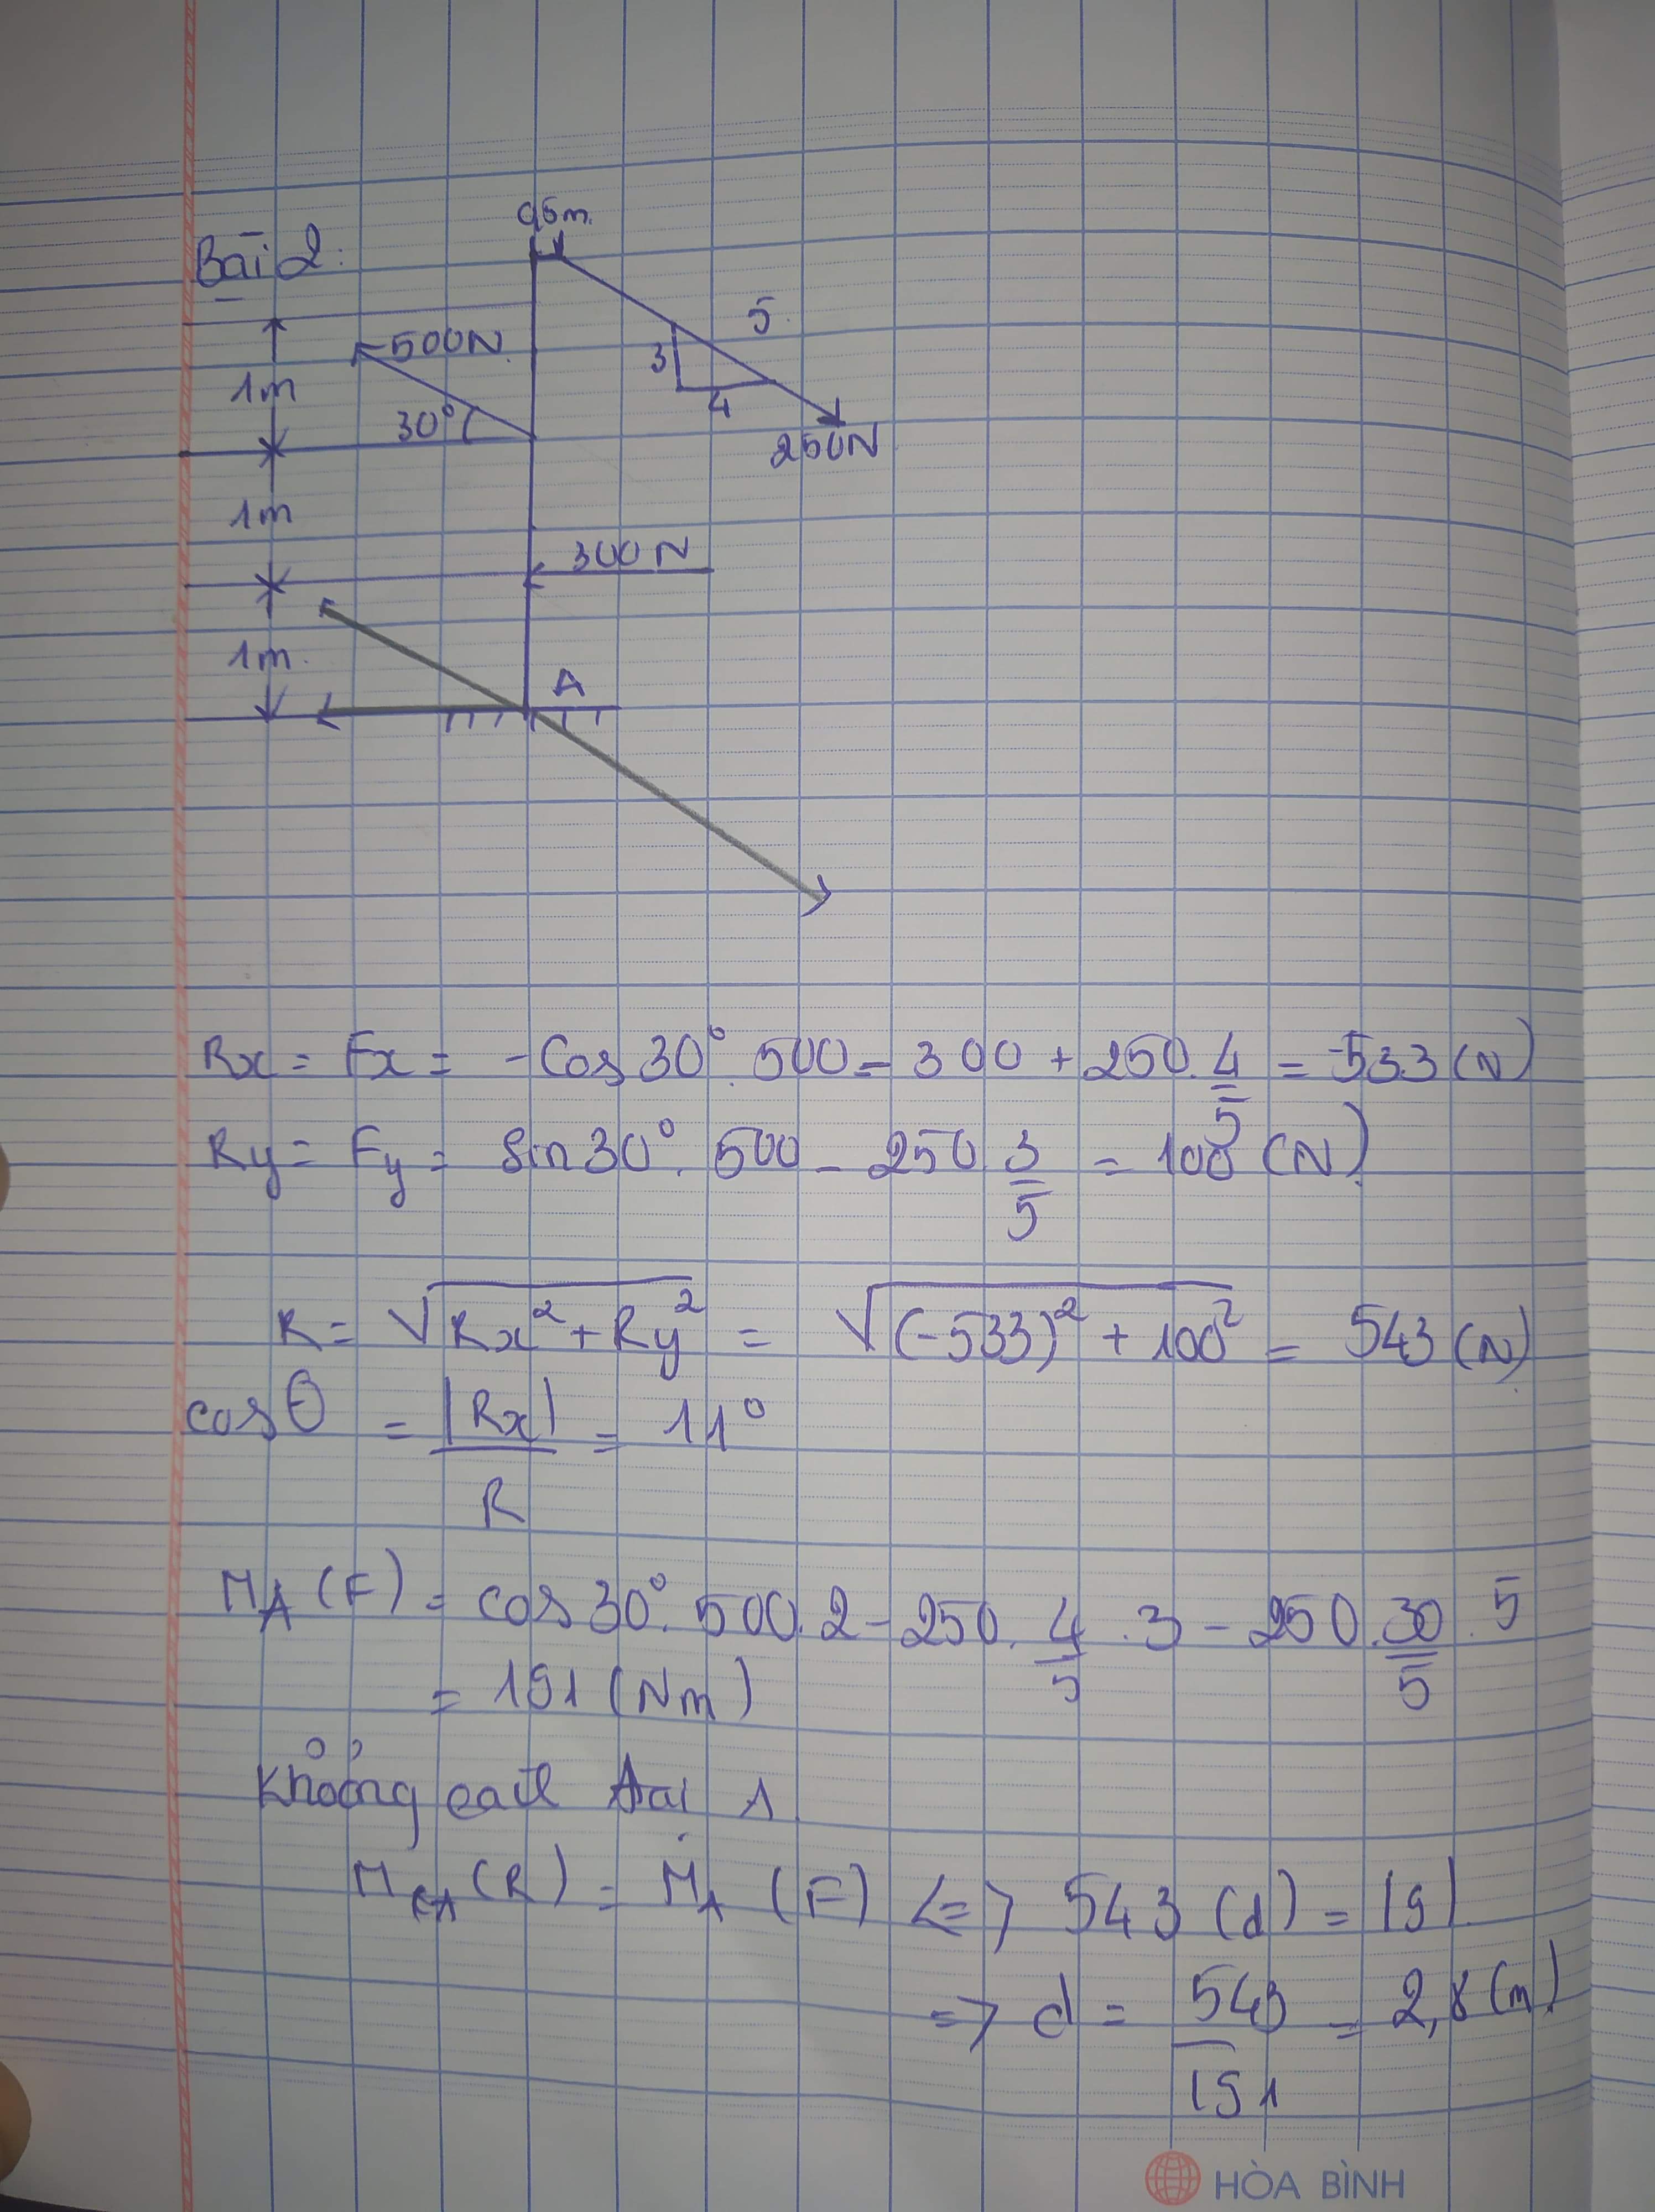 0,5m.
Bài 2:
500N
5
1m
3
30°
4
250N
1m
300N
1m.
A
Rx = Fx = -Cos30°. 500 - 300 + 250. 4/5 = -533 (N)
Ry = Fy = Sin30°. 500 - 250 3/5 = 100 (N)
R = √Rx² + Ry² = √(-533)² + 100² = 543 (N)
cosθ = |Rx|/R = 11°
MA (F) = cos30°. 500. 2 - 250. 4/5 . 3 - 250. 30/5 . 5
= 191 (Nm)
(R) = MA (F) <=> 543 (d) = 191
=> d = 543/191 = 2,8 (m)
HÒA BÌNH